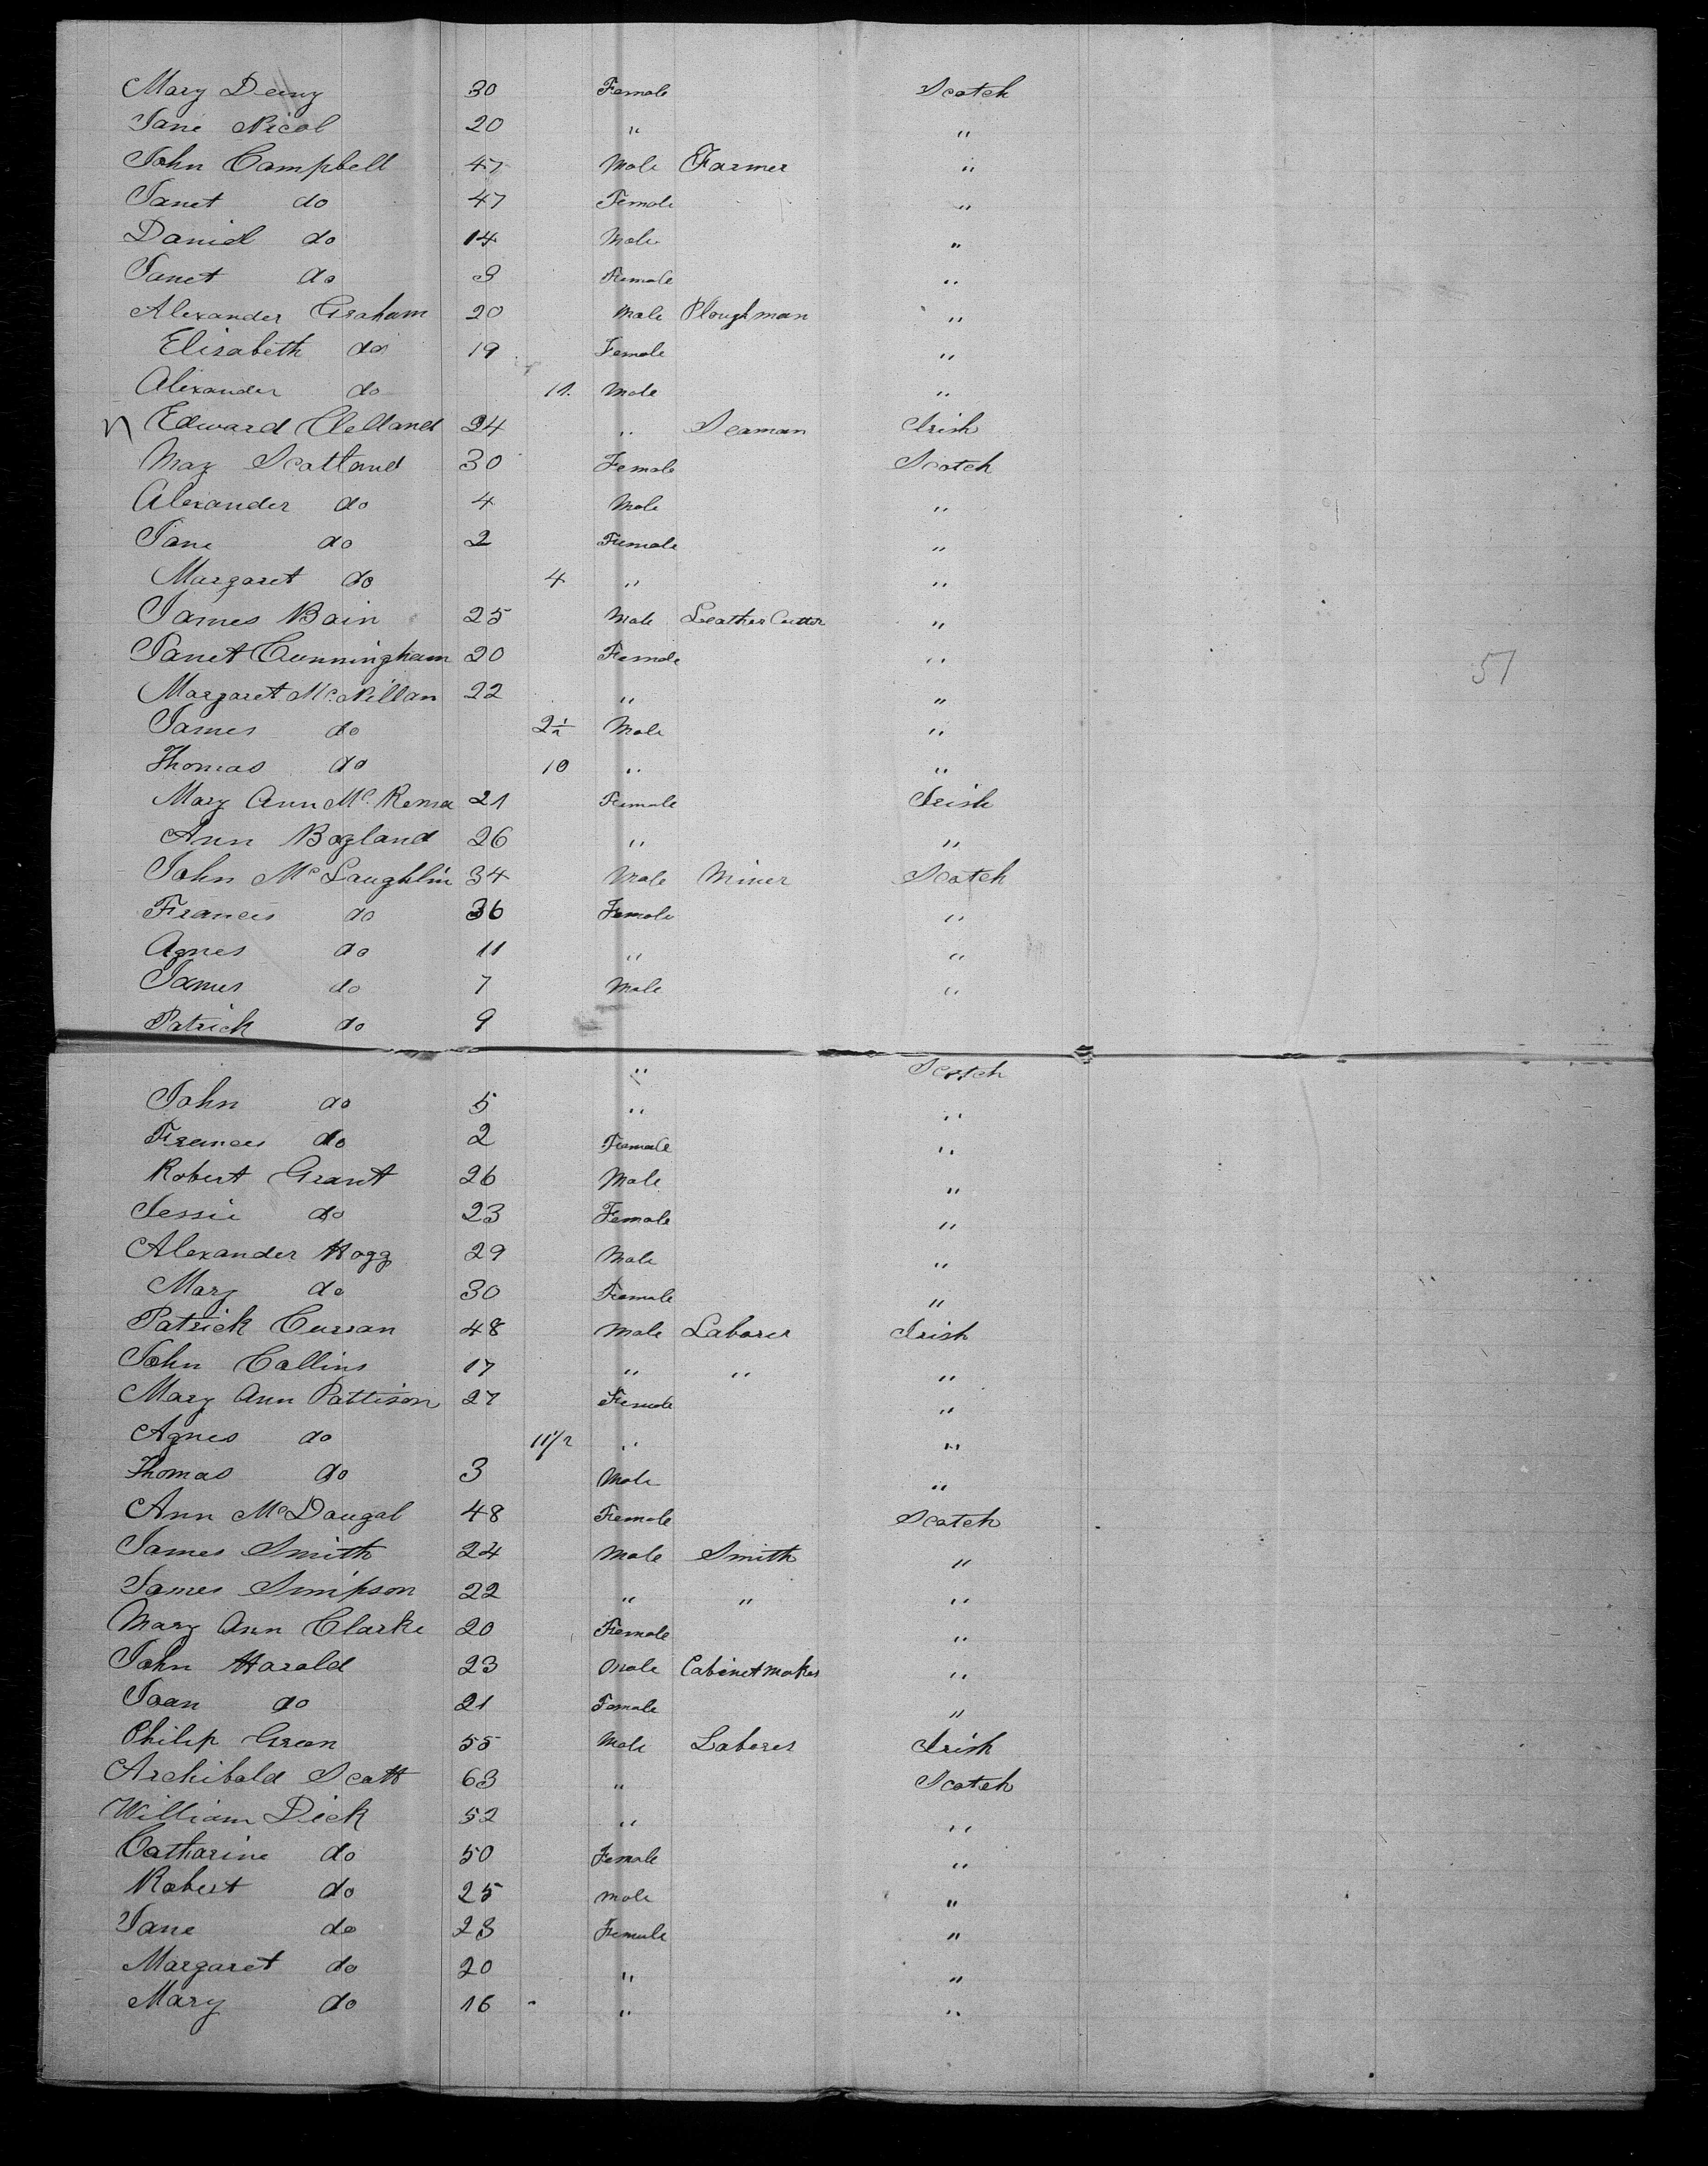 Mary Deuny 30 Female Scotch
Jane Nicol 20 " "
John Campbell 47 Male Farmer "
Janet do 47 Female "
Daniel do 14 Male "
Janet do 8 Female "
Alexander Graham 20 Male Ploughman "
Elizabeth do 19 Female "
Alexander do 11 Male "
Edward Clelland 24 " Seaman Irish
May Scotland 30 Female Scotch
Alexander do 4 Male "
Jane do 2 Female "
Margaret do 4 " "
James Bain 25 Male Leather Cutter "
Janet Cunningham 20 Female "
Margaret McNillan 22 " "
51
James do 2½ Male "
Thomas do 10 " "
Mary Ann McKenna 21 Female Irish
Ann Bogland 26 " "
John McLaughlin 34 Male Miner Scotch
Frances do 36 Female "
Agnes do 11 " "
James do 7 Male "
Patrick do 9 " Scotch
John do 5 " "
Frances do 2 Female "
Robert Grant 26 Male "
Jessie do 23 Female "
Alexander Hogg 29 Male "
Mary do 30 Female "
Patrick Curran 48 Male Laborer Irish
John Collins 17 " " "
Mary Ann Pattison 27 Female "
Agnes do 11½ " "
Thomas do 3 Male "
Ann McDougal 48 Female Scotch
James Smith 24 Male Smith "
James Simpson 22 " " "
Mary Ann Clarke 20 Female "
John Harold 23 Male Cabinetmaker "
Joan do 21 Female "
Philip Green 55 Male Laborer Irish
Archibald Scott 63 " Scotch
William Dick 52 " "
Catharine do 50 Female "
Robert do 25 Male "
Jane do 23 Female "
Margaret do 20 " "
Mary do 16 " "